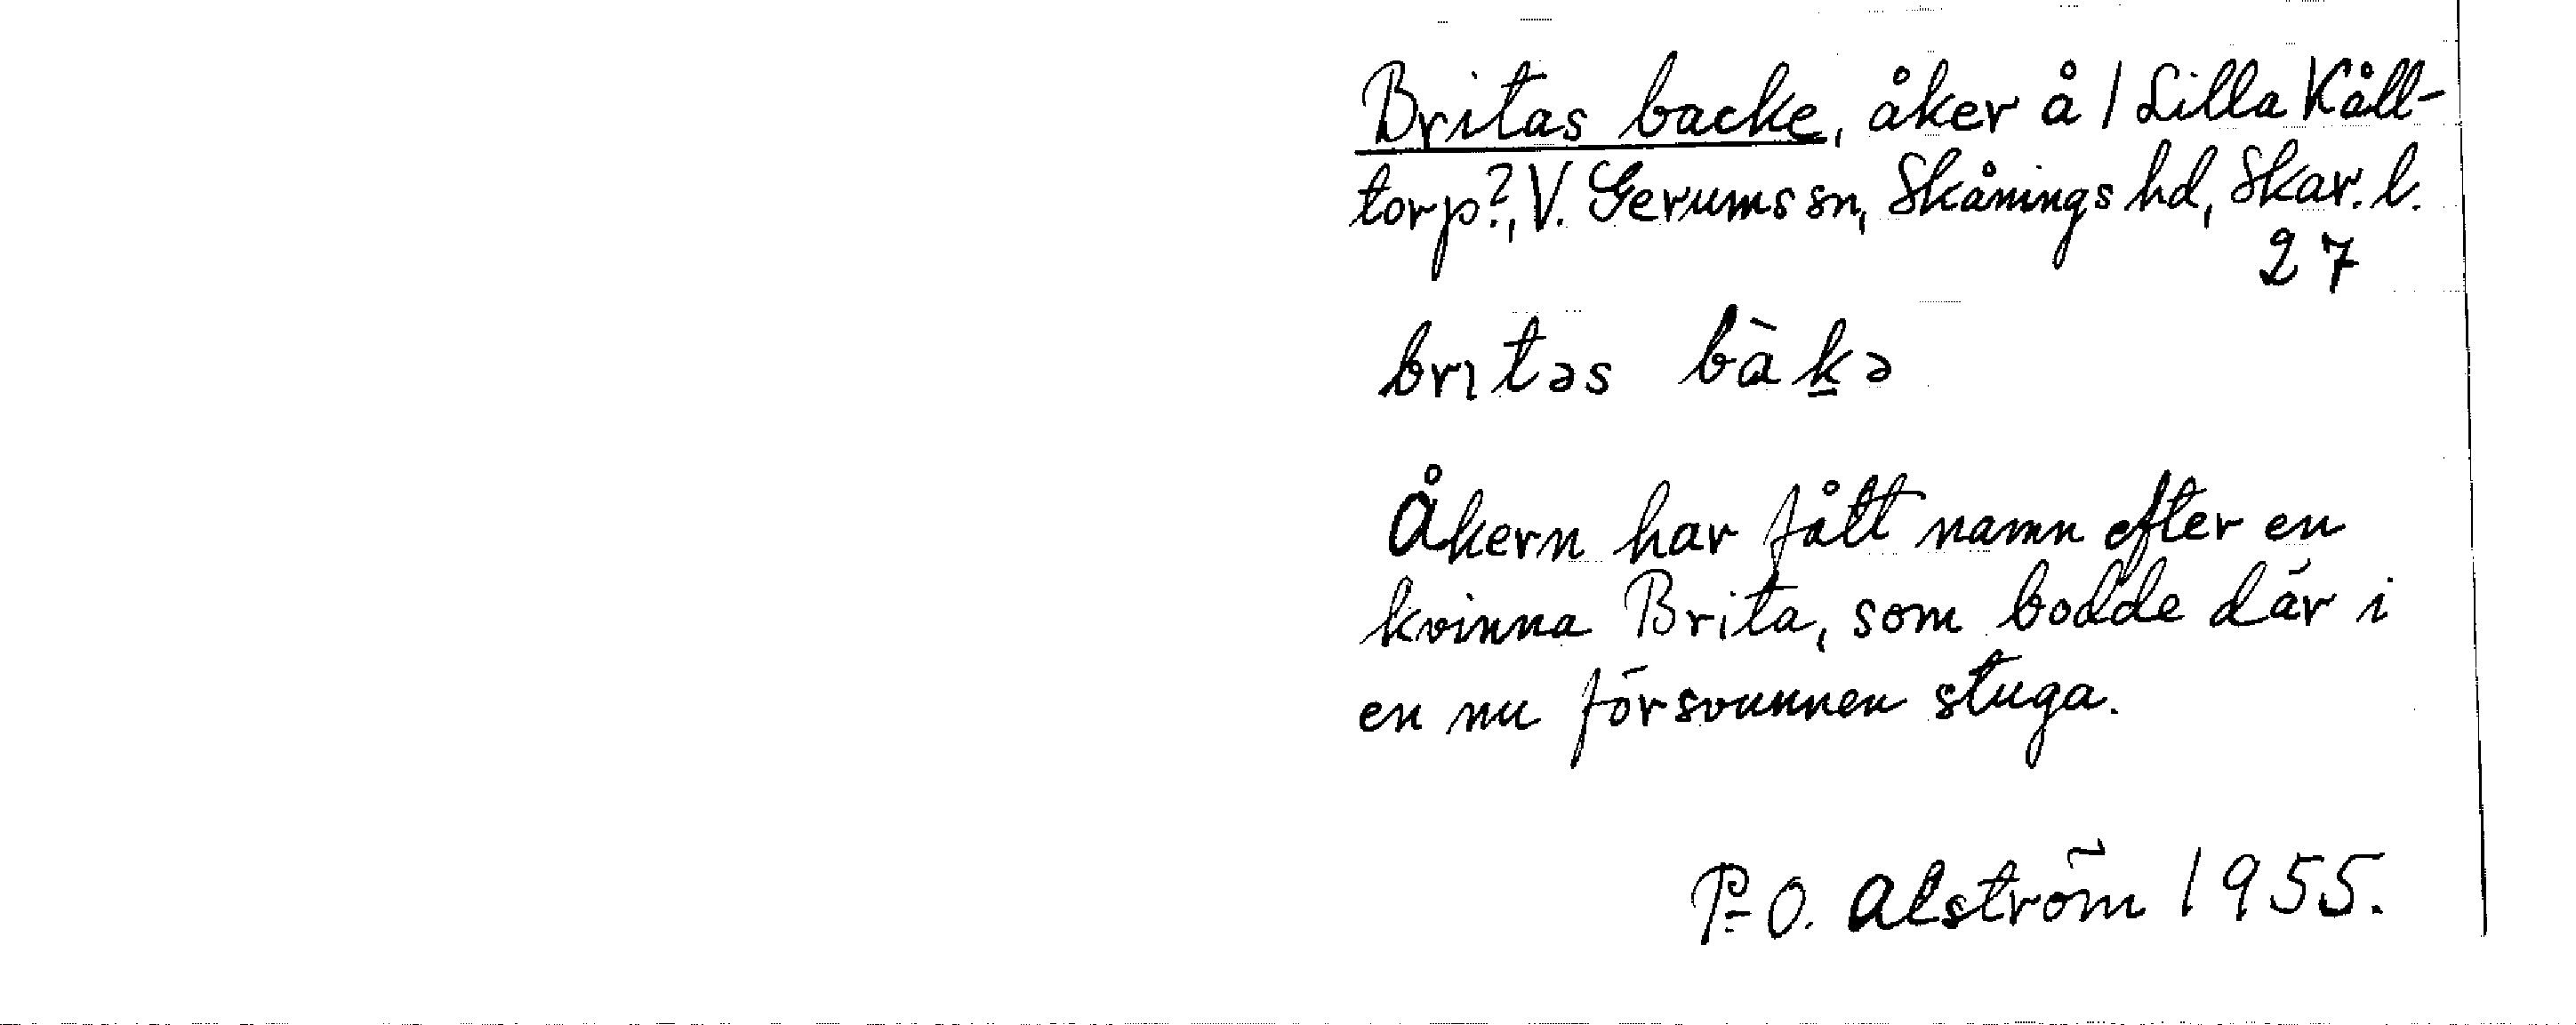 Britas backe, åker å 1 Lilla Kåll-
torp?, V. Gerums sn, Skånings hd, Skar. l.
27
brıtəs bàk̲ə
Åkern har fått namn efter en
kvinna Brita, som bodde där i
en nu försvunnen stuga.
P.-O. Alström 1955.